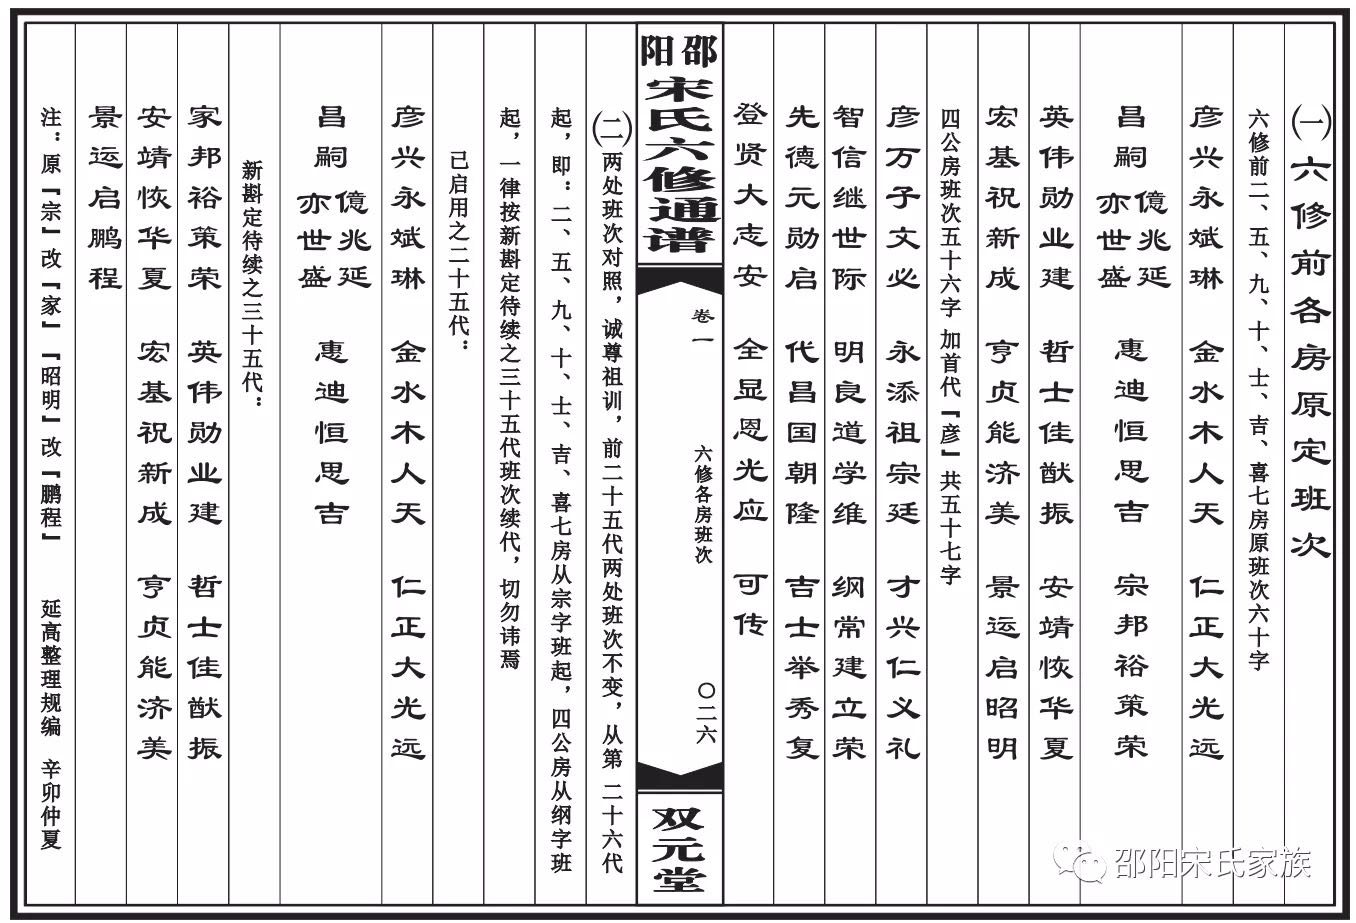 ㈠六修前各房原定班次
六修前二、五、九、十、士、吉、喜七房原班次六十字
彦兴永斌琳 金水木人天 仁正大光远
昌嗣億兆延 惠迪恒思吉 宗邦裕策荣
亦世盛
英伟勋业建 哲士佳猷振 安靖恢华夏
宏基祝新成 亨贞能济美 景运启昭明
四公房班次五十六字 加首代『彦』共五十七字
彦万子文必 永添祖宗廷 才兴仁义礼
智信继世际 明良道学维 纲常建立荣
先德元勋启 代昌国朝隆 吉士举秀复
登贤大志安 全显恩光应 可传
邵阳
宋氏六修通谱
卷一
六修各房班次
〇二六
双元堂
㈡两处班次对照，诚尊祖训，前二十五代两处班次不变，从第 二十六代
起，即：二、五、九、十、士、吉、喜七房从宗字班起，四公房从纲字班
起，一律按新斟定待续之三十五代班次续代，切勿讳焉
已启用之二十五代：
彦兴永斌琳 金水木人天 仁正大光远
昌嗣億兆延 惠迪恒思吉
亦世盛
新斟定待续之三十五代：
家邦裕策荣 英伟勋业建 哲士佳猷振
安靖恢华夏 宏基祝新成 亨贞能济美
景运启鹏程
注：原『宗』改『家』『昭明』改『鹏程』 延高整理规编 辛卯仲夏
邵阳宋氏家族